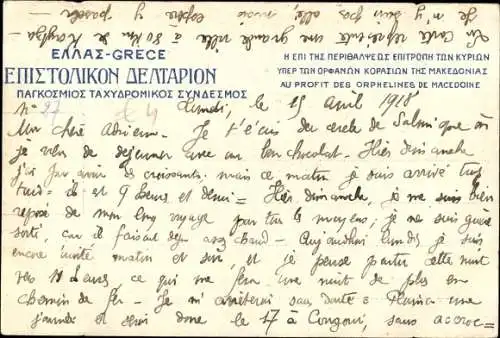 La carte représente une grande ville à 80 km de
Je n'y suis pas allé, mais espère y passer
ΕΛΛΑΣ-GRECE
ΕΠΙΣΤΟΛΙΚΟΝ ΔΕΛΤΑΡΙΟΝ
ΠΑΓΚΟΣΜΙΟΣ ΤΑΧΥΔΡΟΜΙΚΟΣ ΣΥΝΔΕΣΜΟΣ
Η ΕΠΙ ΤΗΣ ΠΕΡΙΘΑΛΨΕΩΣ ΕΠΙΤΡΟΠΗ ΤΩΝ ΚΥΡΙΩΝ
ΥΠΕΡ ΤΩΝ ΟΡΦΑΝΩΝ ΚΟΡΑΣΙΩΝ ΤΗΣ ΜΑΚΕΔΟΝΙΑΣ
AU PROFIT DES ORPHELINES DE MACEDOINE
N° 27 Lundi, le 15 avril 1918
Mon cher Adrien - Je t'écris du cercle de où
je viens de déjeuner avec un bon chocolat - Hier dimanche
j'ai pu avoir des croissants, mais ce matin je suis arrivé trop
tard = il est 9 heures et demi = Hier dimanche, je me suis bien
reposé de mon long voyage par tous les moyens; je ne suis guère
sorti, car il faisait déjà assez chaud - Aujourdhui lundi je suis
encore invité matin et soir, et je pense partir cette nuit
vers 11 heures ce qui me fera une nuit de plus en
chemin de fer - Je m'arrêterai sans doute à Florina une
journée et serai donc le 17 à sans accroc -